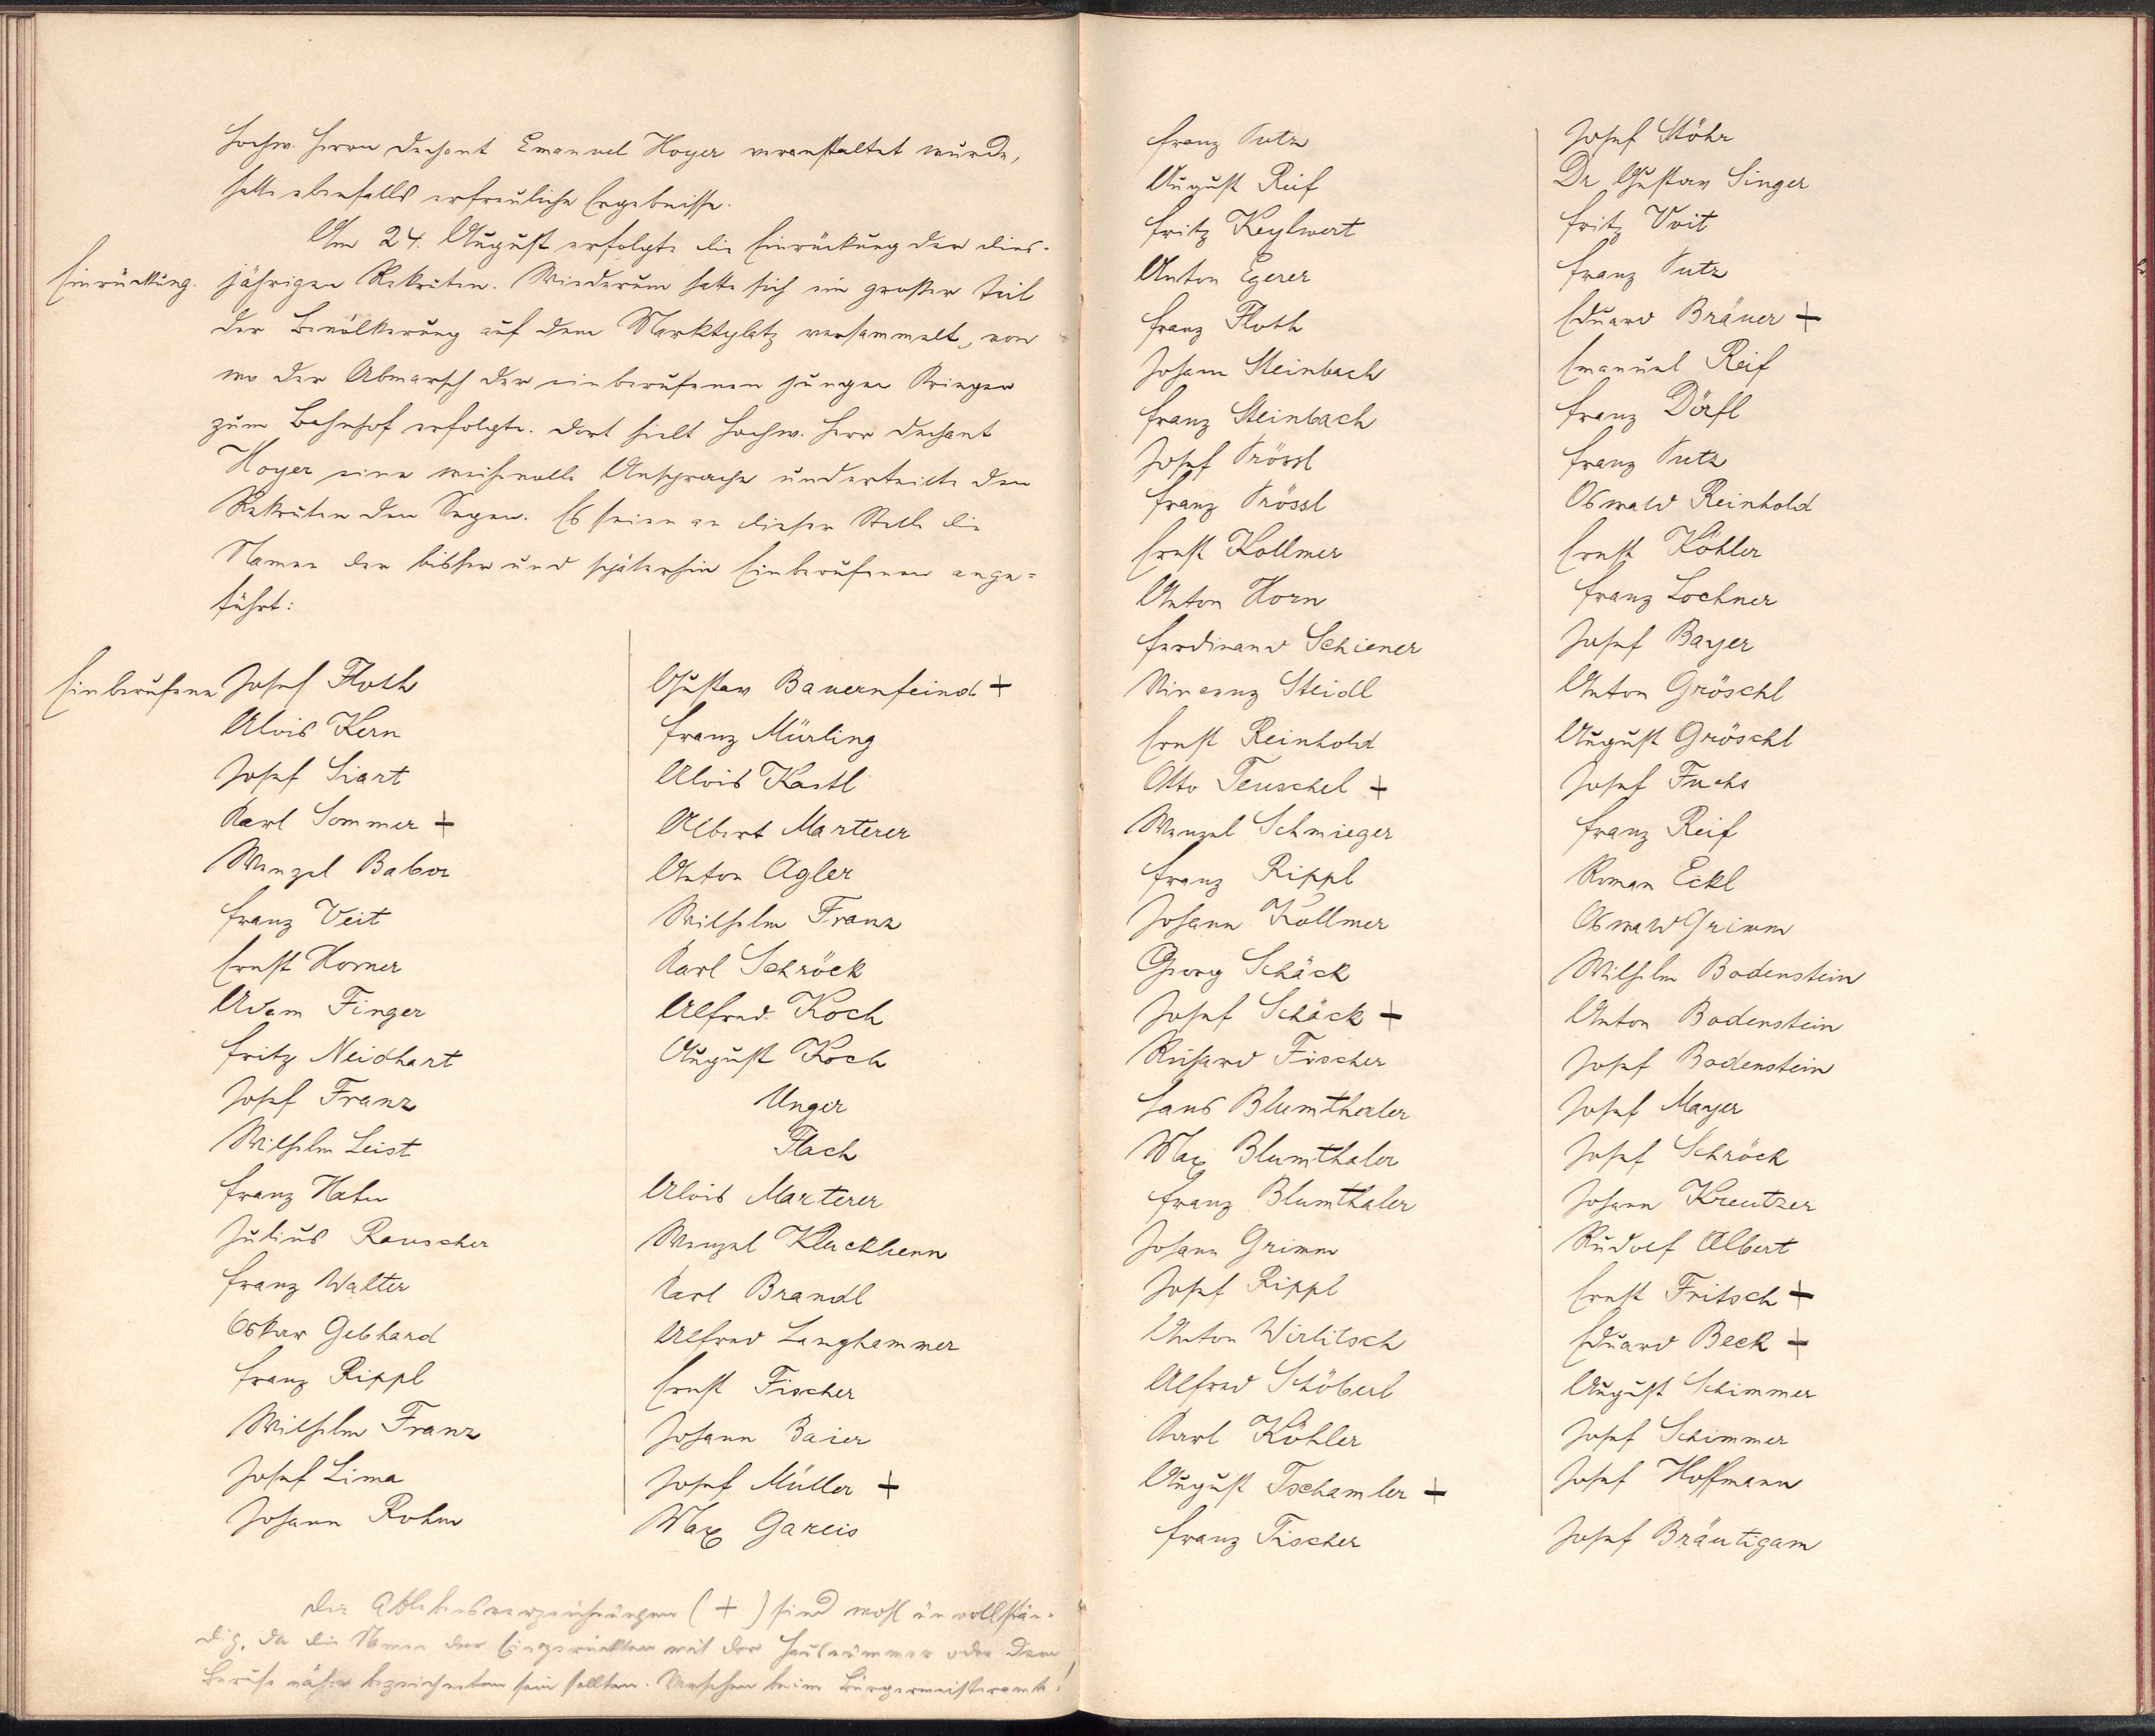 hochw. Herrn Dechant Emanuel Hoyer veranstaltet wurde,
hatte ebenfalls erfreuliche Ergebnisse.
Am 24. August erfolgte die Einrückung der dies-
Einrückung.
jährigen Rekruten. Wiederum hatte sich ein großer Teil
der Bevölkerung auf dem Marktplatz versammelt, von
wo der Abmarsch der einberufenen jungen Krieger
zum Bahnhof erfolgte. Dort hielt hochw. Herr Dechant
Hoyer eine weihevolle Ansprache und erteilte den
Rekruten den Segen. Es seien an dieser Stelle die
Namen der bisher und späterhin Einberufenen ange=
führt:
Einberufene
Josef Floth
Alois Kern
Josef Siart
Karl Sommer +
Wenzel Babor
Franz Veit
Ernst Horner
Adam Finger
Fritz Neidhart
Josef Franz
Wilhelm Leist
Franz Hahn
Julius Rauscher
Franz Walter
Oskar Gebhard
Franz Rippl
Wilhelm Franz
Josef Lima
Johann Rohm
Gustav Bauernfeind +
Franz Mürling
Alois Kastl
Albert Marterer
Anton Agler
Wilhelm Franz
Karl Schröck
Alfred Koch
August Koch
Unger
Flach
Alois Marterer
Wenzel Kluckhenn
Karl Brandl
Alfred Langhammer
Ernst Fischer
Johann Baier
Josef Müller +
Max Gareis
Die Ablebensverzeichnungen (+) sind wohl unvollstän-
dig, da die Namen der Eingerückten mit der Hausnummer oder dem
Berufe näher bezeichnet sein sollten. Nachsehen beim Bürgermeisteramte!
Franz Putz
August Reif
Fritz Keylwert
Anton Egerer
Franz Floth
Johann Steinbach
Franz Steinbach
Josef Prössl
Franz Prössl
Ernst Kollmer
Anton Horn
Ferdinand Schiener
Vincenz Steidl
Ernst Reinhold
Otto Teuschel +
Wenzel Schmieger
Franz Rippl
Johann Kollmer
Georg Schäck
Josef Schäck +
Richard Fischer
Hans Blumthaler
Max Blumthaler
Franz Blumthaler
Johann Grimm
Josef Rippl
Anton Wirlitsch
Alfred Schöberl
Karl Köhler
August Tschamler +
Franz Fischer
Josef Stöhr
Dr Gustav Singer
Fritz Veit
Franz Putz
Eduard Bräuer +
Emanuel Reif
Franz Dörfl
Franz Putz
Oswald Reinhold
Ernst Köhler
Franz Lochner
Josef Bayer
Anton Gröschl
August Gröschl
Josef Fuchs
Franz Reif
Roman Eckl
Oswald Grimm
Wilhelm Bodenstein
Anton Bodenstein
Josef Bodenstein
Josef Mayer
Josef Schröck
Johann Kreutzer
Rudolf Albert
Ernst Fritsch +
Eduard Beck +
August Schimmer
Josef Schimmer
Josef Hoffmann
Josef Bräutigam